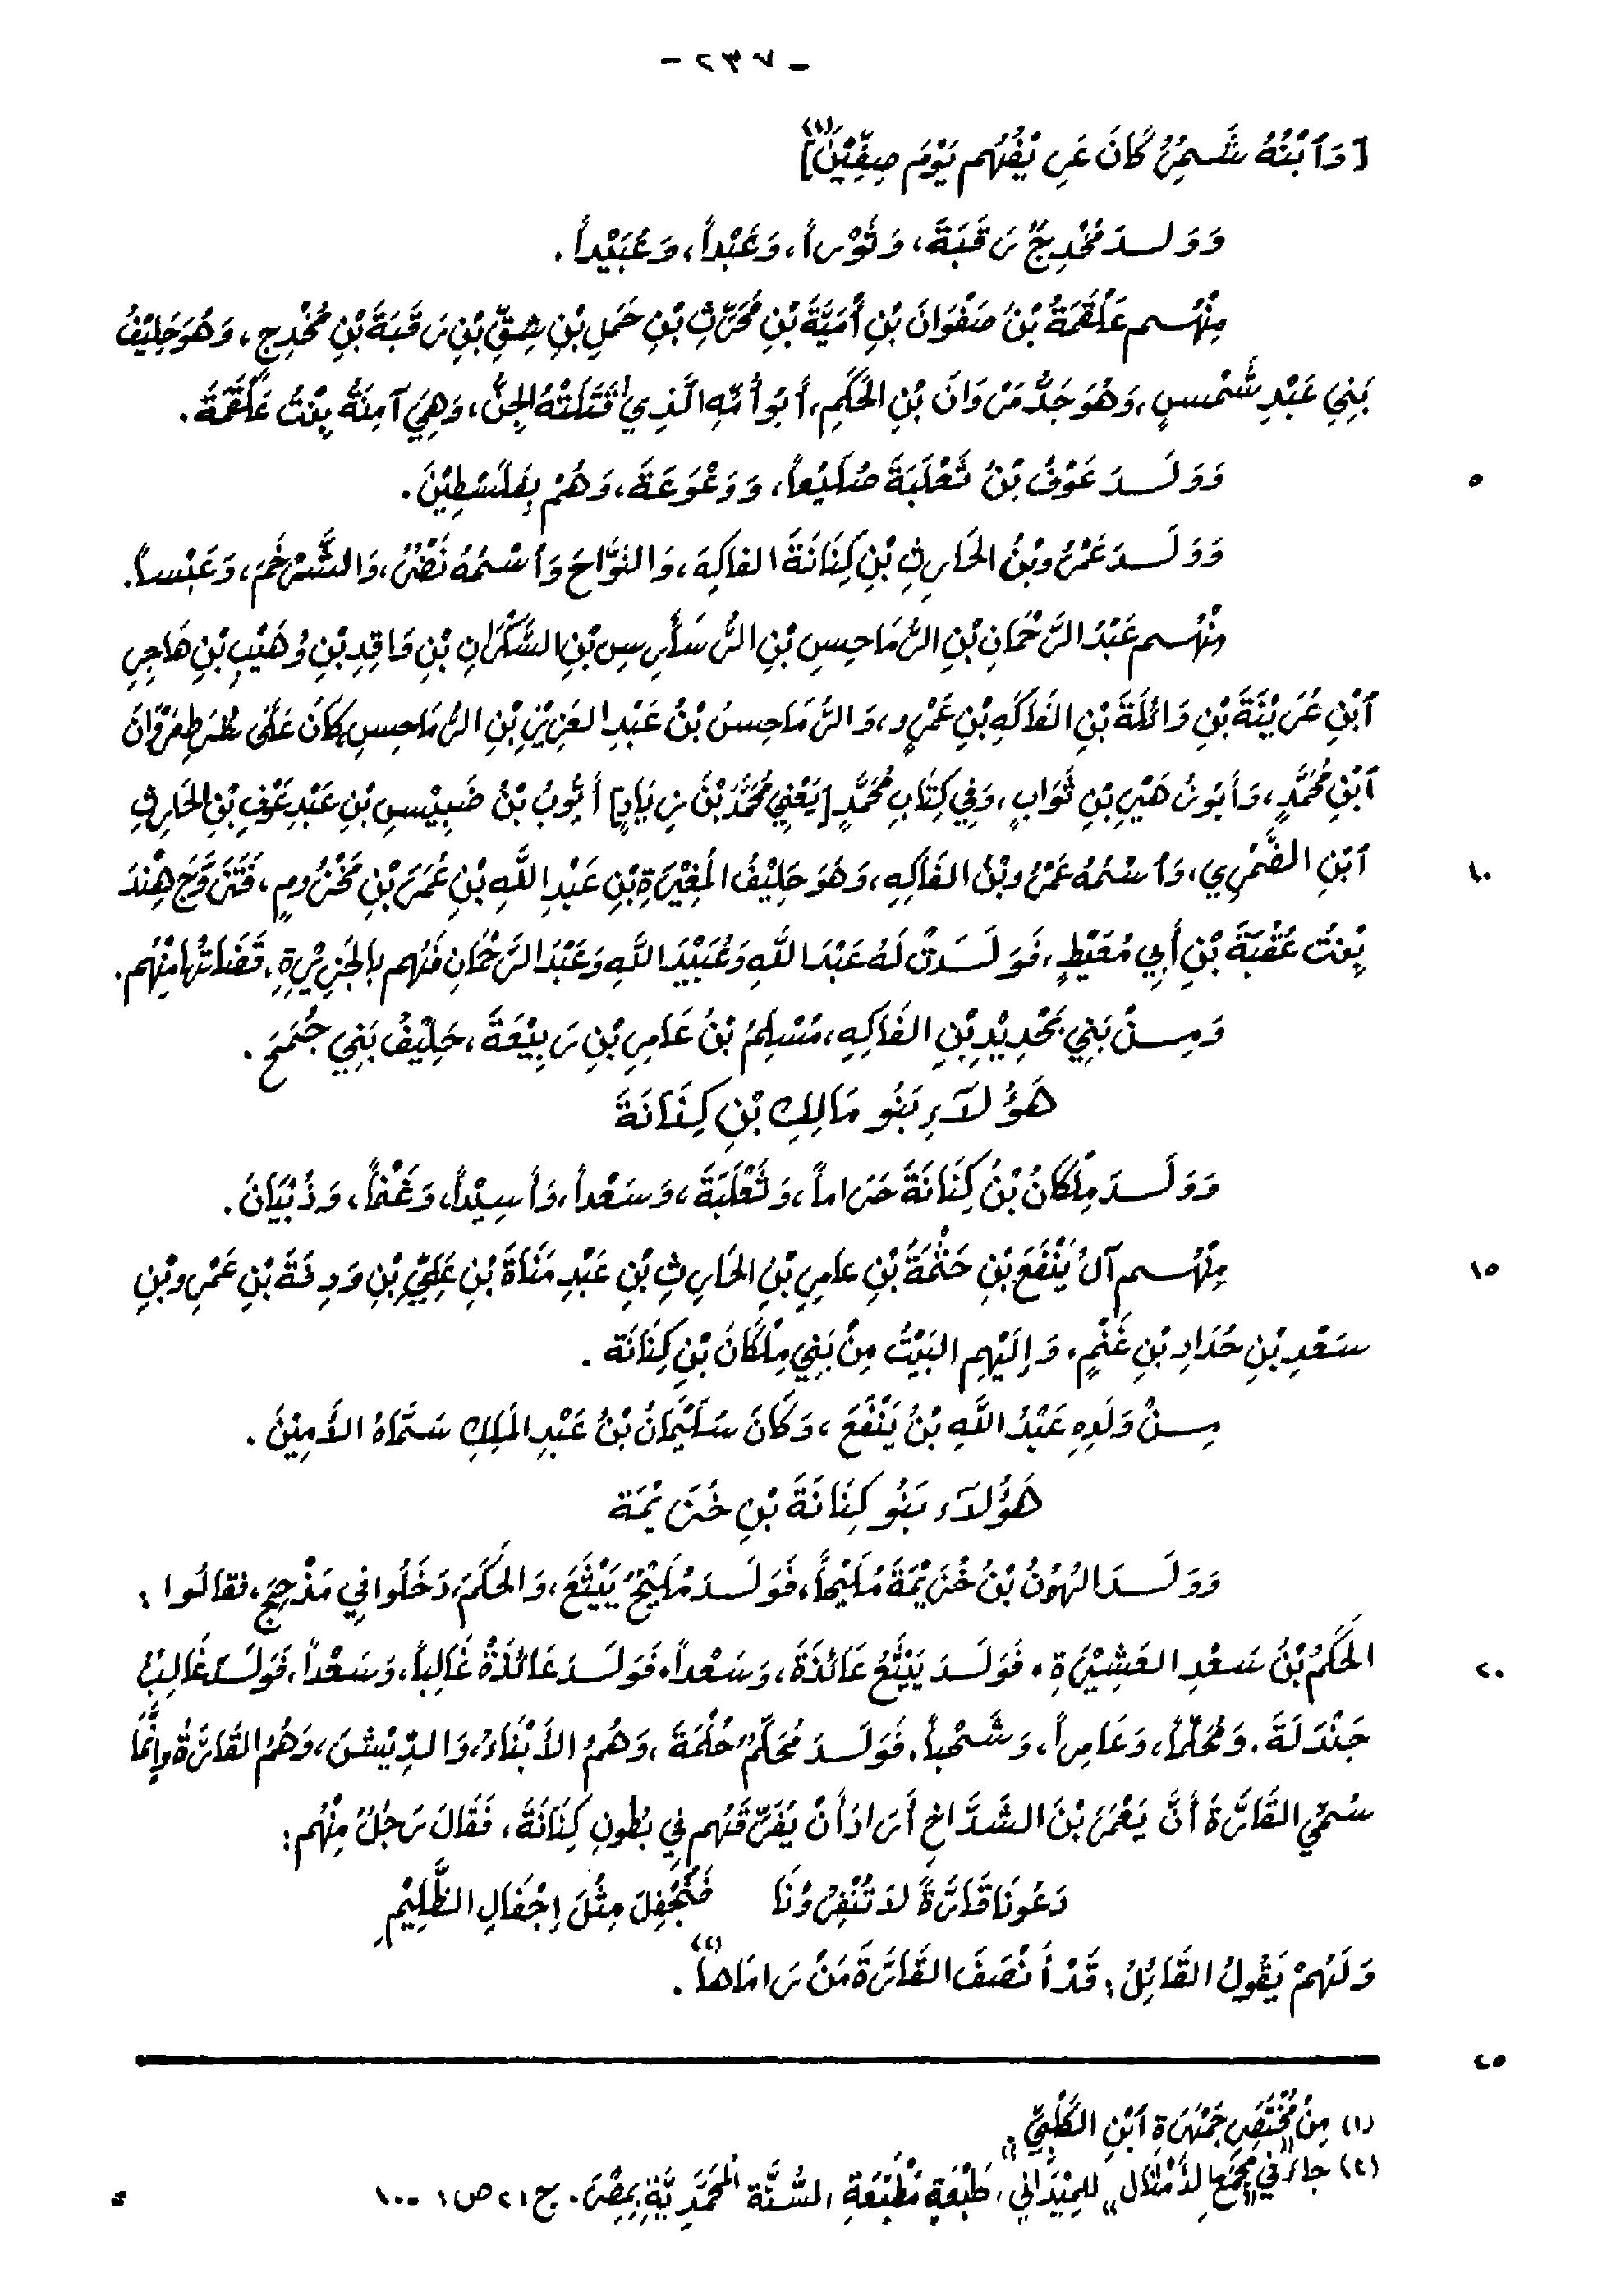 - ٢٣٧ -
[وَٱبْنُهُ شَمِرُ كَانَ عَرِيْفُهُم يَوْمَ صِفِّيْنَ](١)
وَوَلَدَ مُخْدِجٌ رَقَبَةَ، وَثَوْراً، وَعَبْداً، وَعُبَيْداً.
مِنْهُم عَلْقَمَةُ بْنُ صَفْوَانَ بْنِ أُمَيَّةَ بْنِ مُحَرِّثِ بْنِ حَمَلِ بْنِ شِقِّ بْنِ رَقَبَةَ بْنِ مُخْدِجٍ، وَهُوَ حَلِيْفُ
بَنِيَ عَبْدِ شَمْسٍ، وَهُوَ جَدُّ مَرْوَانَ بْنِ الحَكَمِ، أَبُو أُمِّهِ الَّذِي قَتَلَتْهُ الجِنُّ، وَهِيَ آمِنَةُ بِنْتُ عَلْقَمَةَ.
٥ وَوَلَدَ عَوْفُ بْنُ ثَعْلَبَةَ ضُلَيْعاً، وَوَعْوَعَةَ، وَهُمْ بِفَلَسْطِيْنَ.
وَوَلَدَ عَمْرُو بْنُ الحَارِثِ بْنِ كِنَانَةَ الفاكِهَ، وَالنَّوَّاحَ وَٱسْمُهُ نَضْرٌ، وَالشَّرْخَمَ، وَعَبْساً.
مِنْهُم عَبْدُ الرَّحْمَانِ بْنِ الرُّمَاحِسِ بْنِ الرُّسَارِسِ بْنِ السَّكْرَانِ بْنِ وَاقِدِ بْنِ وُهَيْبِ بْنِ هَاجِرِ
ٱبْنِ عُرَيْنَةَ بْنِ وَائلَةَ بْنِ الفَاكَهِ بْنِ عَمْرٍو، وَالرُّمَاحِسُ بْنُ عَبْدِ العَزِيْزِ بْنِ الرُّمَاحِسِ كَانَ عَلَى شُرَطِ مَرْوَانَ
ٱبْنِ مُحَمَّدٍ، وَأَبُو زُهَيْرِ بْنِ ثَوَابٍ، وَفِي كِتَابِ مُحَمَّدٍ [يَعْنِي مُحَمَّدَ بْنَ زِيَادٍ] أَيُّوبُ بْنُ ضَبِيْسِ بْنِ عَبْدِ عَوْفِ بْنِ الحَارِثِ
١٠ ٱبْنِ الضَّمْرِي، وَٱسْمُهُ عَمْرُو بْنُ الفَاكِهِ، وَهُوَ حَلِيْفُ المُغِيْرَةِ بْنِ عَبْدِ اللَّهِ بْنِ عُمَرَ بْنِ مَخْزُومٍ، فَتَزَوَّجَ هِنْدَ
بِنْتَ عُقْبَةَ بْنِ أَبِي مُعَيْطٍ، فَوَلَدَتْ لَهُ عَبْدَ اللَّهِ وَعُبَيْدَ اللَّهِ وَعَبْدَ الرَّحْمَانِ فَهُم بِالجَزِيْرَةِ، قُضَاتُها مِنْهُم.
وَمِنْ بَنِي بَحْدِيْدِ بْنِ الفَاكِهِ، مُسْلِمُ بْنُ عَامِرِ بْنِ رَبِيْعَةَ، حَلِيْفُ بَنِي جُمَحَ.
هَؤُلَآءِ بَنُو مَالِكِ بْنِ كِنَانَةَ
وَوَلَدَ مِلْكَانُ بْنُ كِنَانَةَ حَرَاماً، وَثَعْلَبَةَ، وَسَعْداً، وَأُسِيْداً، وَغَنْماً، وَذُبْيَانَ.
١٥ مِنْهُم آلُ يَنْفَعَ بْنِ حَثْمَةَ بْنِ عامِرِ بْنِ الحَارِثِ بْنِ عَبْدِ مَنَاةَ بْنِ عَلِيِّ بْنِ وَدِفَةَ بْنِ عَمْرِو بْنِ
سَعْدِ بْنِ حُدَادِ بْنِ غَنْمٍ، وَإِلَيْهِم البَيْتُ مِنْ بَنِي مِلْكَانَ بْنِ كِنَانَة.
مِنْ وَلَدِهِ عَبْدُ اللَّهِ بْنُ يَنْفَعَ، وَكَانَ سُلَيْمَانُ بْنُ عَبْدِ المَلِكِ سَمَّاهُ الأَمِيْنَ.
هَؤُلَآءِ بَنُو كِنَانَةَ بْنِ خُزَيْمَة
وَوَلَدَ الهُونُ بْنُ خُزَيْمَةَ مُلَيْحاً، فَوَلَدَ مُلَيْحٌ يَيْثَعَ، وَالحَكَمَ، دَخَلُوا فِي مَذْحِجٍ، فَقالُوا:
٢٠ الحَكَمُ بْنُ سَعْدِ العَشِيْرَةِ. فَوَلَدَ يَيْثَعُ عَائذَةَ، وَسَعْداً. فَوَلَدَ عَائذَةُ غَالِباً، وَسَعْداً، فَوَلَدَ غَالِبٌ
جَنْدَلَةَ، وَمُحَلِّماً، وَعَامِراً، وَشَحْباً، فَوَلَدَ مُحَلِّمٌ حُلْمَةَ، وَهُمُ الأَبْنَاءُ، وَالدِّيْشَ، وَهُمُ القَارَةُ، وإِنَّمَا
سُمِّي القَارَةَ أَنَّ يَعْمَرَ بْنَ الشَّدَّاخِ أَرَادَ أَنْ يُفَرِّقَهُم فِي بُطُونِ كِنَانَةَ، فَقَالَ رَجُلٌ مِنْهُم:
دَعُونَا قَارَةً لا تُنْفِرُونَا فَنُجْفِلَ مِثْلَ إِجْفَالِ الظَّلِيْمِ
وَلَهُمْ يَقُولُ القَائِلُ: قَدْ أَنْصَفَ القَارَةَ مَنْ رَامَاها(٢).
٢٥
(١) مِنْ مُخْتَصَرِ جَمْهَرَةِ ٱبْنِ الكَلْبِيِّ.
(٢) جاءَ في «مَجْمَعِ الأَمْثال» للمِيْدَاني، طَبْعَةِ مَطْبَعَةِ السُّنَّة المُحَمَّدِيَّةِ بِمِصْرَ. ج ٢١ ص ١٠٠- =